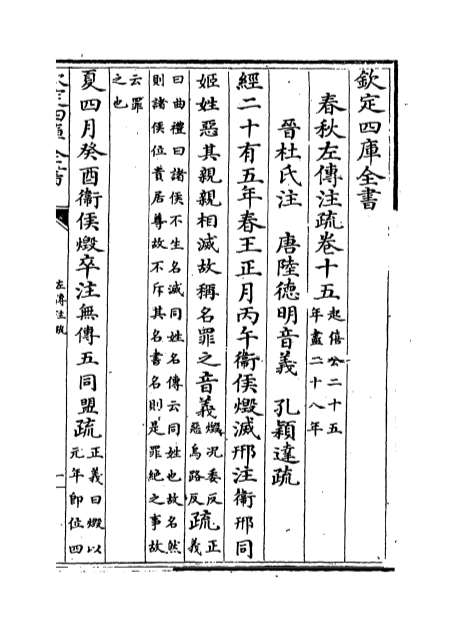 欽定四庫全書
春秋左傳注疏卷十五起僖公二十五
年盡二十八年
晉杜氏注　唐陸德明音義　孔穎達疏
經二十有五年春王正月丙午衞侯燬滅邢注衞邢同
姬姓惡其親親相滅故稱名罪之音義燬况委反
惡烏路反疏正
義
曰曲禮曰諸侯不生名滅同姓名傳云同姓也故名然
則諸侯位貴居尊故不斥其名書名則是罪絶之事故
云罪
之也
夏四月癸酉衞侯燬卒注無傳五同盟疏正義曰燬以
元年即位四
左傳注疏
一